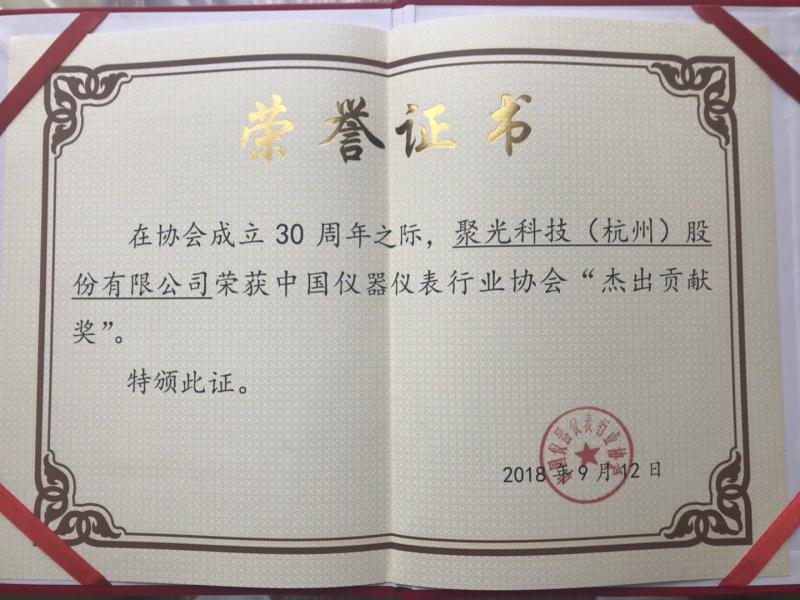 荣誉证书
在协会成立30周年之际，聚光科技（杭州）股
份有限公司荣获中国仪器仪表行业协会“杰出贡献
奖”。
特颁此证。
中国仪器仪表行业协会
2018年9月12日